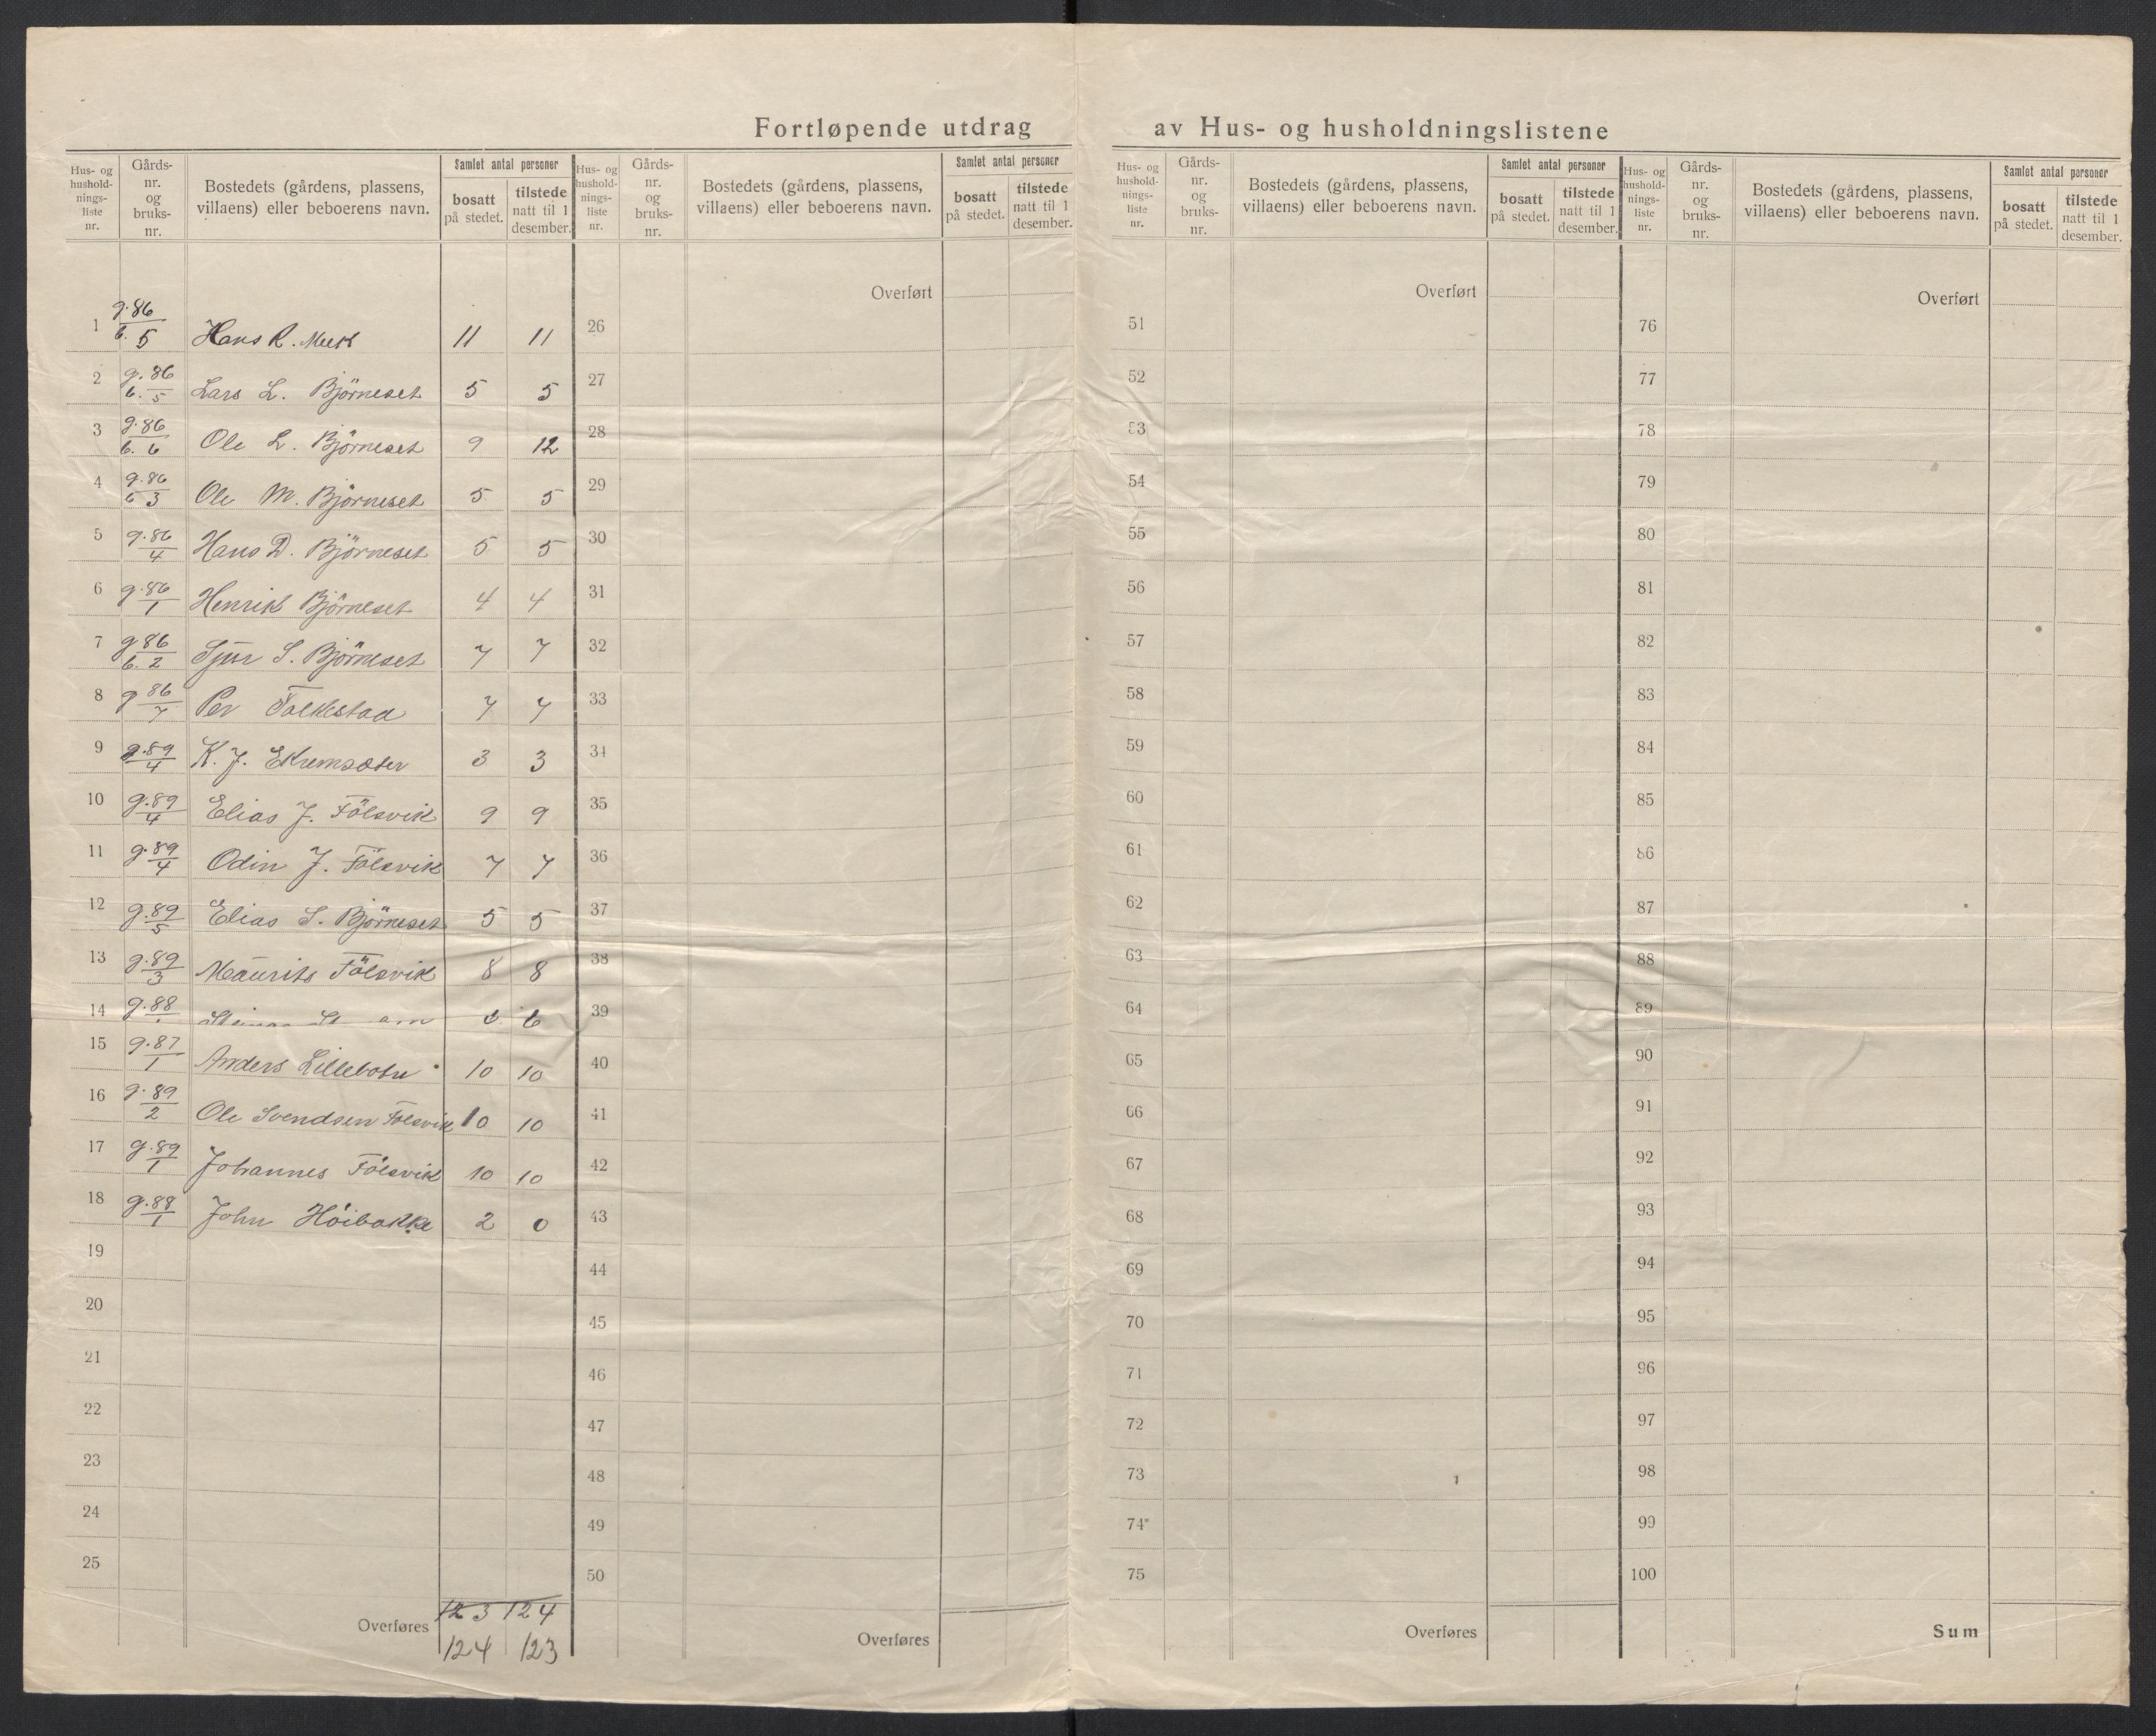 Fortløpende utdrag av Hus- og husholdningslistene
Hus- og hushold- nings- liste nr. | Gårds- nr. og bruks- nr. | Bostedets (gårdens, plassens, villaens) eller beboerens navn. | Samlet antal personer | bosatt på stedet. | tilstede natt til 1 desember.
Hus- og hushold- nings- liste nr. | Gårds- nr. og bruks- nr. | Bostedets (gårdens, plassens, villaens) eller beboerens navn. | Samlet antal personer | bosatt på stedet. | tilstede natt til 1 desember.
Hus- og hushold- nings- liste nr. | Gårds- nr. og bruks- nr. | Bostedets (gårdens, plassens, villaens) eller beboerens navn. | Samlet antal personer | bosatt på stedet. | tilstede natt til 1 desember.
Hus- og hushold- nings- liste nr. | Gårds- nr. og bruks- nr. | Bostedets (gårdens, plassens, villaens) eller beboerens navn. | Samlet antal personer | bosatt på stedet. | tilstede natt til 1 desember.
1 g.86/b.5 Hans R. Meek 11 11
2 g.86/b.5 Lars L. Björneset 5 5
3 g.86/b.6 Ole L. Björneset 9 12
4 g.86/b 3 Ole M. Björneset 5 5
5 g.86/4 Hans D. Björneset 5 5
6 g.86/1 Henrik Björneset 4 4
7 g 86/b.2 Sjur S. Björneset 7 7
8 g 86/7 Per Folkestad 7 7
9 g.89/4 K. J. Ekremsæter 3 3
10 g.89/4 Elias J. Fölsvik 9 9
11 g.89/4 Odin J. Fölsvik 7 7
12 g.89/5 Elias S. Björneset 5 5
13 g.89/3 Maurits Fölsvik 8 8
14 g.88 6 6
15 g.87/1 Anders Lillebotn 10 10
16 g.89/2 Ole Svendsen Fölsvik 10 10
17 g.89/1 Johannes Fölsvik 10 10
18 g.88/1 John Höibakke 2 0
19
20
21
22
23
24
25
Overføres 123 124
124 123
Overført
26
27
28
29
30
31
32
33
34
35
36
37
38
39
40
41
42
43
44
45
46
47
48
49
50
Overføres
Overført
51
52
53
54
55
56
57
58
59
60
61
62
63
64
65
66
67
68
69
70
71
72
73
74
75
Overføres
Overført
76
77
78
79
80
81
82
83
84
85
86
87
88
89
90
91
92
93
94
95
96
97
98
99
100
Sum